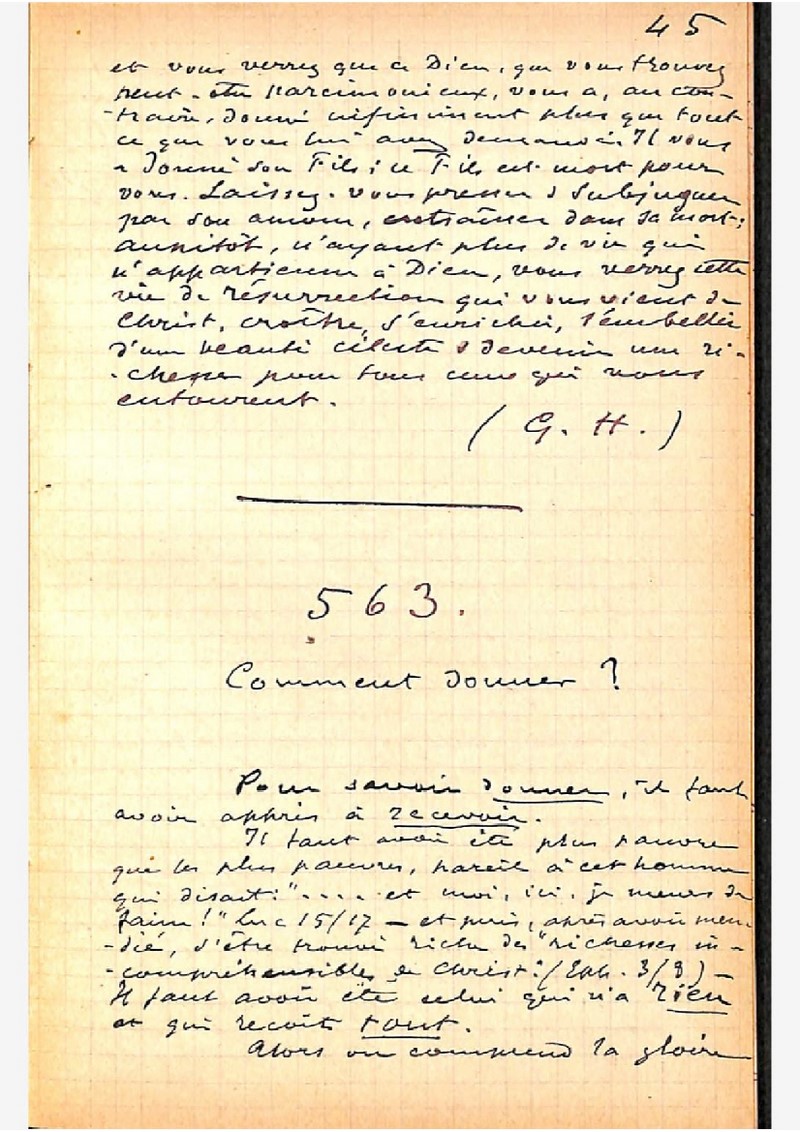 45
et vous verrez que ce Dieu, que vous trouvez
peut-être parcimonieux, vous a, au con-
-traire, donné infiniment plus que tout
ce que vous lui avez demandé. Il vous
a donné son Fils; ce Fils est mort pour
vous. Laissez-vous presser & subjuguer
par son amour, entraîner dans sa mort;
aussitôt, n'ayant plus de vie qui
n'appartienne à Dieu, vous verrez cette
vie de résurrection qui vous vient de
Christ, croître, s'enrichir, s'embellir
d'une beauté céleste & devenir une ri-
-chesse pour tous ceux qui vous
entourent.
(G. H.)
563.
Comment donner ?
Pour savoir donner, il faut
avoir appris à recevoir.
Il faut avoir été plus pauvre
que les plus pauvres, pareil à cet homme
qui disait: ".... et moi, ici, je meurs de
faim!" Luc 15/17 — et puis, après avoir men-
-dié, s'être trouvé riche des "richesses in-
-compréhensibles de Christ" (Eph. 3/8) —
Il faut avoir été celui qui n'a rien
et qui reçoit tout.
Alors on comprend la gloire